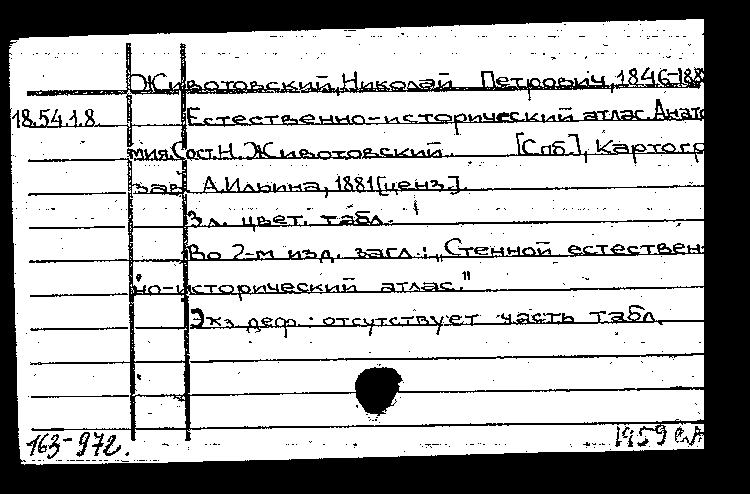 Животовский, Николай Петрович, 1846-188
18.54.1.8. Естественно-исторический атлас. Анато
мия. Сост. Н. Животовский. [Спб.], Картогр
зав. А. Ильина, 1881 [ценз.].
3 л. цвет. табл.
Во 2-м изд. загл.: „Стенной естествен-
но-исторический атлас."
Экз. деф.: отсутствует часть табл.
163-972. 1959